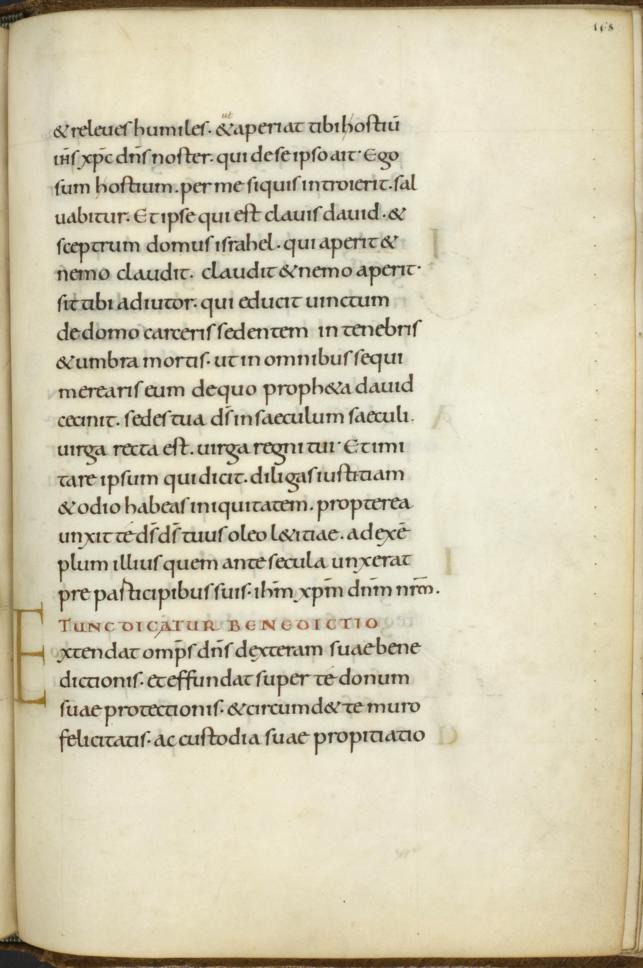 168
& releues humiles. ut & aperiat tibi hostiū
ih̄s xp̄c dn̄s noster. qui de se ipso ait. Ego
sum hostium. per me si quis introierit. sal
uabitur. Et ipse qui est clauis dauid. &
sceptrum domus israhel. qui aperit &
nemo claudit. claudit & nemo aperit.
sit tibi adiutor. qui educit uinctum
de domo carceris sedentem in tenebris
& umbra mortis. ut in omnibus sequi
merearis eum de quo proph&a dauid
cecinit. sedes tua d̄s in saeculum saeculi.
uirga recta est. uirga regni tui. Et imi
tare ipsum qui dicit. diligas iustitiam
& odio habeas iniquitatem. propterea
unxit te d̄s d̄s tuus oleo l&itiae. ad exē
plum illius quem ante secula unxerat
pre participibus suis. ih̄m xp̄m dn̄m nr̄m.
TUNC DICATUR BENEDICTIO
Extendat omp̄s dn̄s dexteram suae bene
dictionis. et effundat super te donum
suae protectionis. & circumd& te muro
felicitatis. ac custodia suae propitiatio